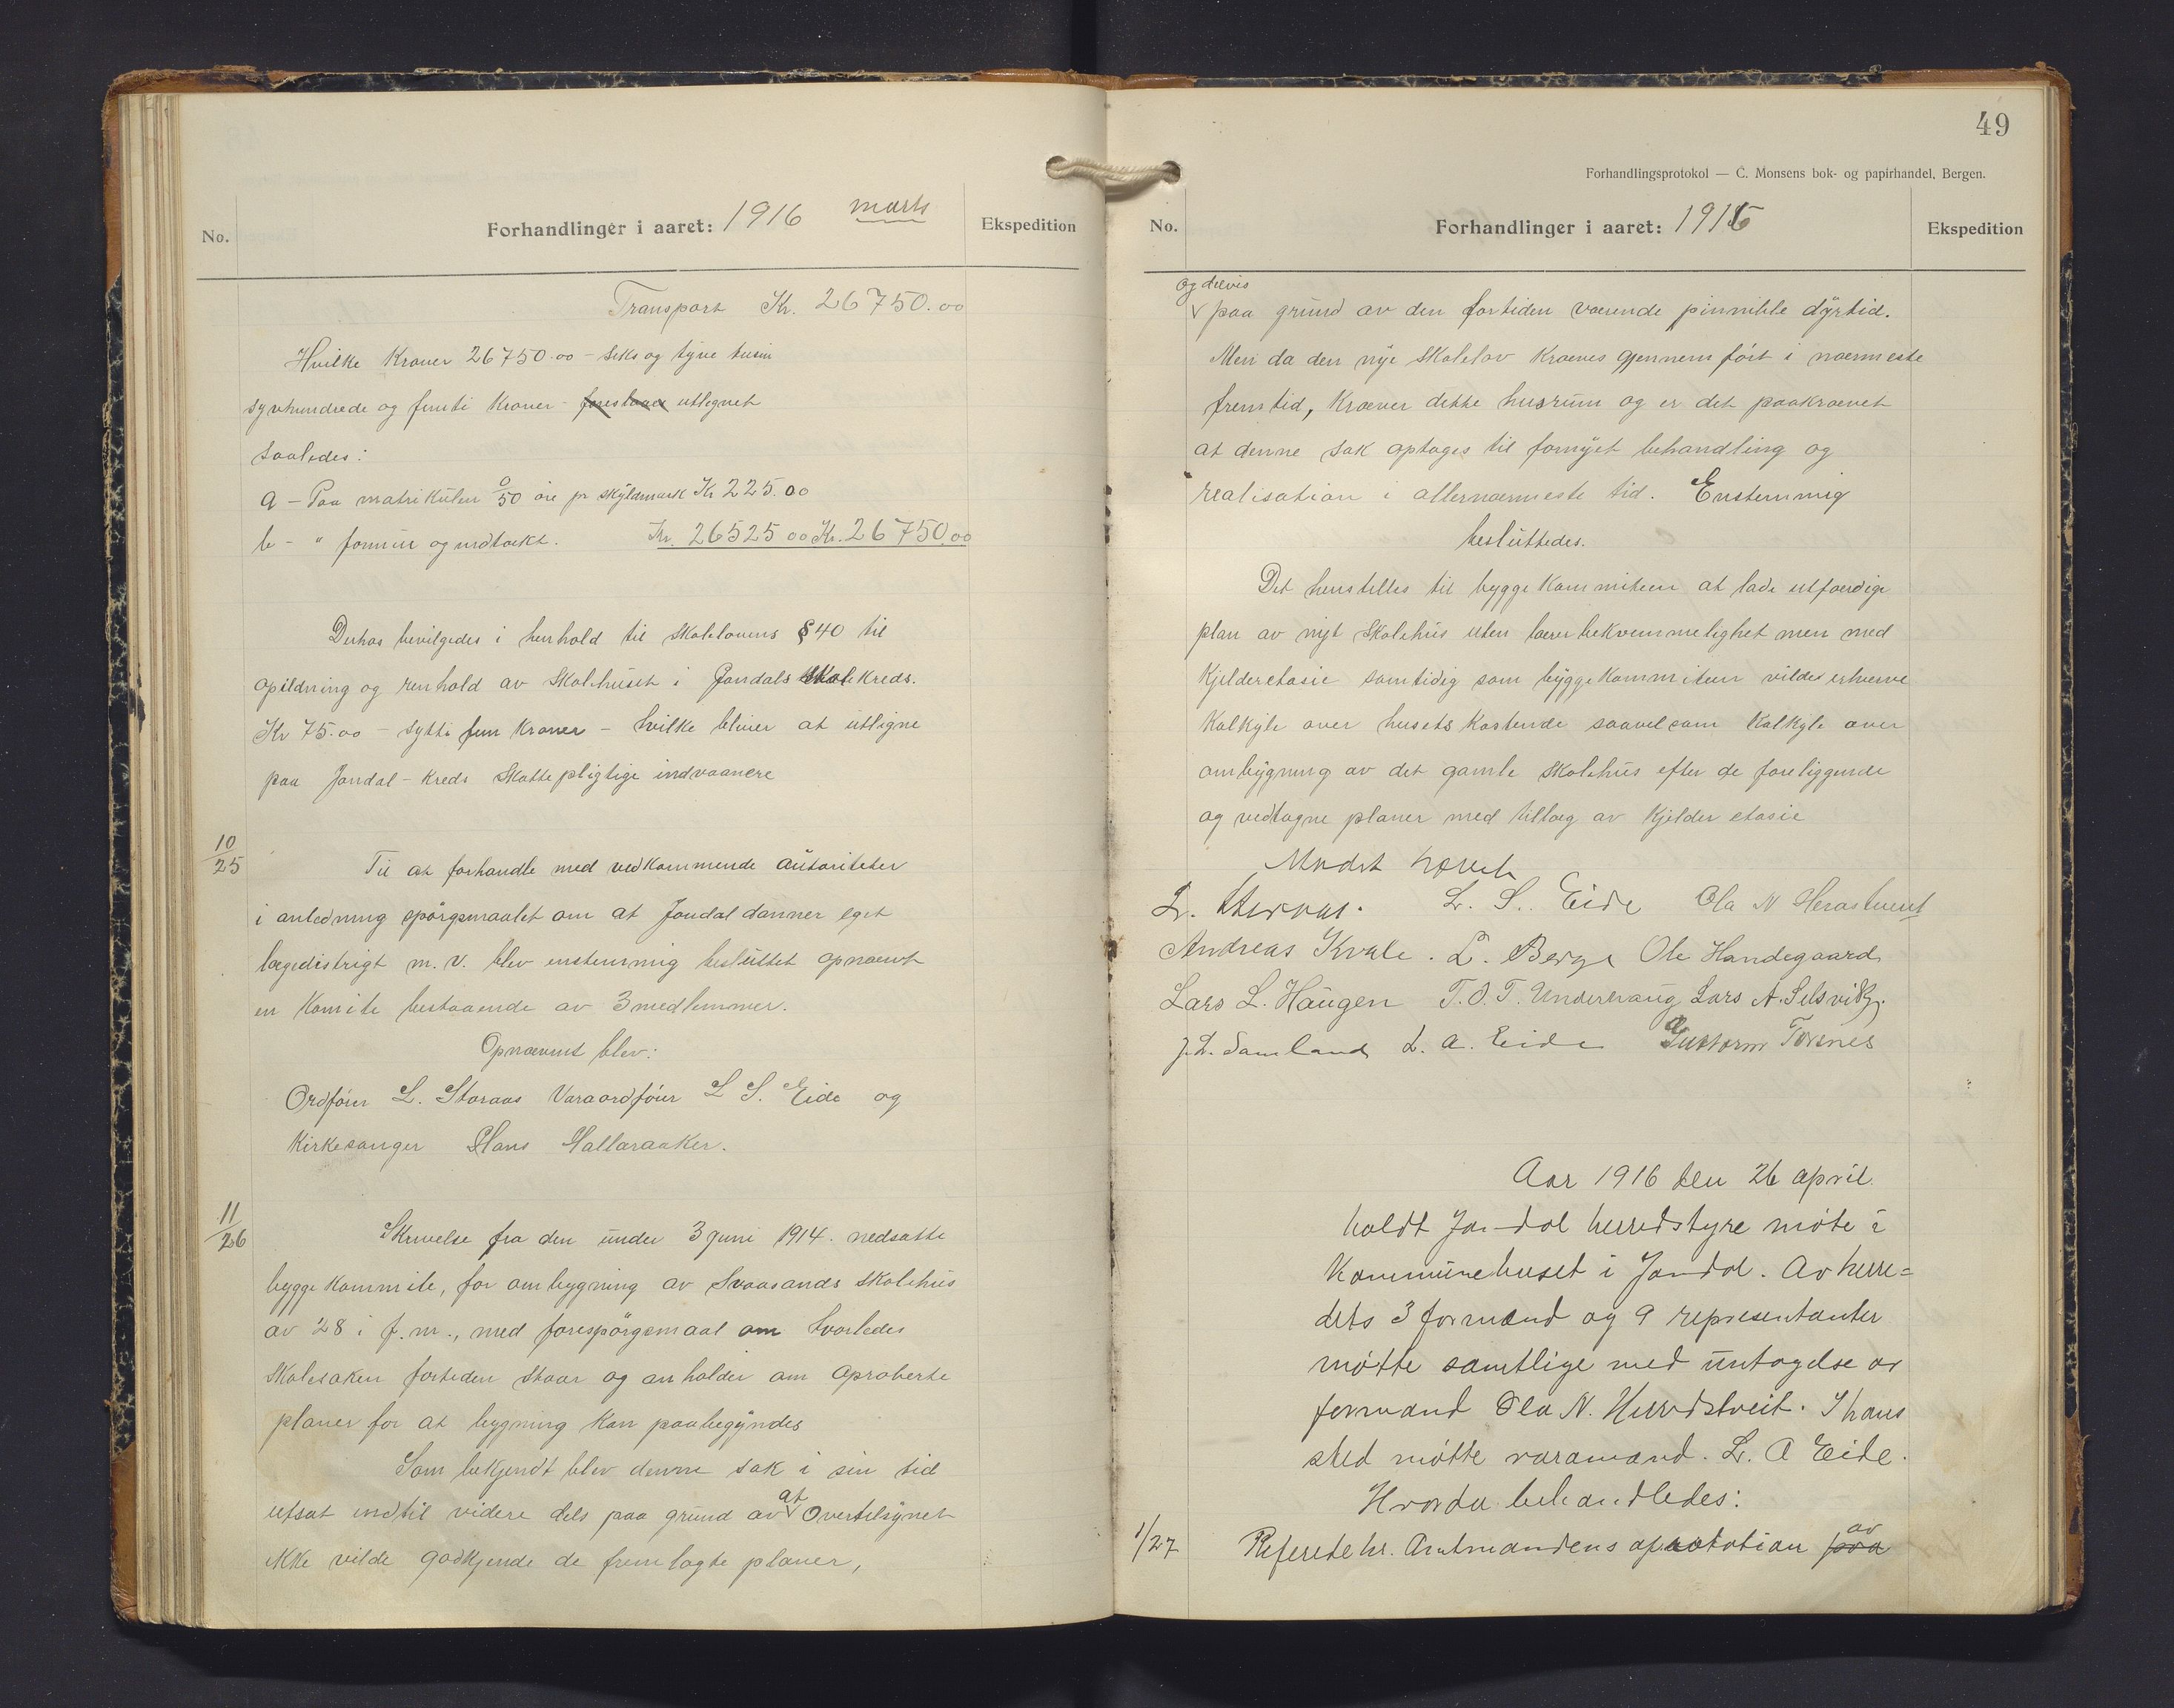 No.
Forhandlinger i aaret: 1916 marts
Ekspedition
Transport Kr. 26750.00
Hvilke Kroner 26750.00 – seks og tyve tusin
syvhundrede og femti Kroner – forestaaer utlegnet
saaledes:
a – Paa matrikulen 0/50 öre pr skyldmark Kr 225.00
b – " formue og indtækt. Kr. 26525 00 Kr. 26750.00
Derhos bevilgedes i henhold til skolelovens § 40 til
opildning og renhold av skolehuset i Jondals skolekreds.
Kr 75.00 – sytti fem Kroner – hvilke bliver at utligne
paa Jondal-Kreds skattepligtige indvaanere
10/25
Til at forhandle med vedkommende autoriteter
i anledning spörgsmaalet om at Jondal danner eget
lægedistrigt m. v. blev enstemmig besluttet opnævnt
en Komite bestaaende av 3 medlemmer.
Opnævnt blev:
Ordförer L. Storaas Varaordförer L S. Eide og
Kirkesanger Hans Hallaraaker.
11/26
Skrivelse fra den under 3 juni 1914. nedsatte
byggekommite, for ombygning av Svaasands skolehus
av 28 i f. m., med forespörgsmaal om hvorledes
skolesaken fortiden staar og anholder om aproberte
planer for at bygning kan paabegyndes
Som bekjendt blev denne sak i sin tid
utsat indtil videre dels paa grund av at Overtilsynet
ikke vilde godkjende de fremlagte planer,
49
Forhandlingsprotokol — C. Monsens bok- og papirhandel, Bergen.
No.
Forhandlinger i aaret: 1916
Ekspedition
og delvis
paa grund av den fortiden værende pinnible dyrtid.
Men da den nye skolelov kræves gjennemfört i nærmeste
fremtid, Kræver dette husrum og er det paakrævet
at denne sak optages til fornyet behandling og
realisation i allernærmeste tid. Enstemmig
besluttedes.
Det henstilles til byggekommiteen at lade utfærdige
plan av nyt skolehus uten lærerbekvemmelighet men med
Kjelderetasie samtidig som byggekommiteen vilde erhverve
Kalkyle over husets kostende saavelsom Kalkyle over
ombygning av det gamle skolehus efter de foreliggende
og vedtagne planer med tillæg av Kjelder etasie
Mødet hævet
L. Storaas. L. S. Eide Ola N Herastveit
Andreas Kvale. L. Berge Ole Handegaard
Lars L. Haugen T. O. T. Underhaug Lars A. Selsvik
J. L. Samland L. A. Eide Guttorm Torsnes
Aar 1916 den 26 april
holdt Jondal herredstyre møte i
Kommunehuset i Jondal. Av herre=
dets 3 formænd og 9 representanter
møtte samtlige med untagelse av
formand Ola N. Herredstveit. I hans
sted møtte varamand. L. A Eide.
Hvorda behandledes:
1/27
Referedes hr. Amtmandens apnotation paa av